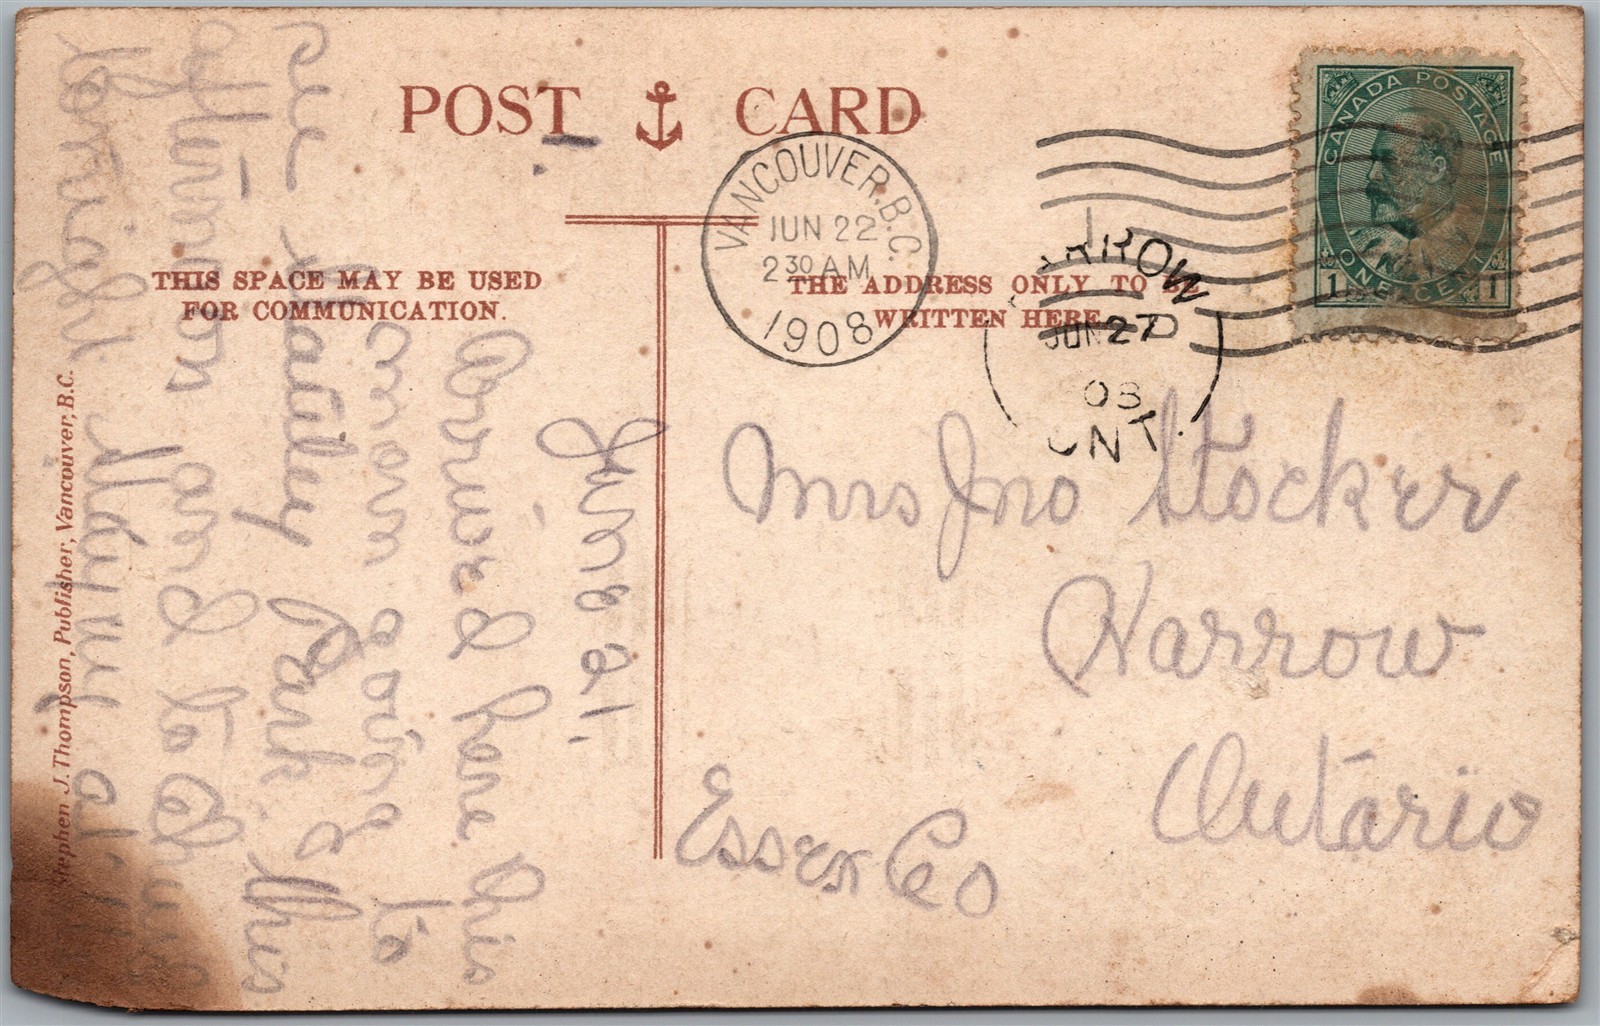 POST CARD
CANADA POSTAGE
ONE CENT
1 1
VANCOUVER, B.C.
JUN 22
2 30 AM
1908
THIS SPACE MAY BE USED
FOR COMMUNICATION.
THE ADDRESS ONLY TO BE
WRITTEN HERE
RROW
JUN 27
08
ONT.
Mrs Jno Stocker
Harrow
Ontario
Essex Co
June 21.
Arrived here this
morn going to
see Stanley Park this
afternoon and to Church
tonight
Stephen J. Thompson, Publisher, Vancouver, B.C.